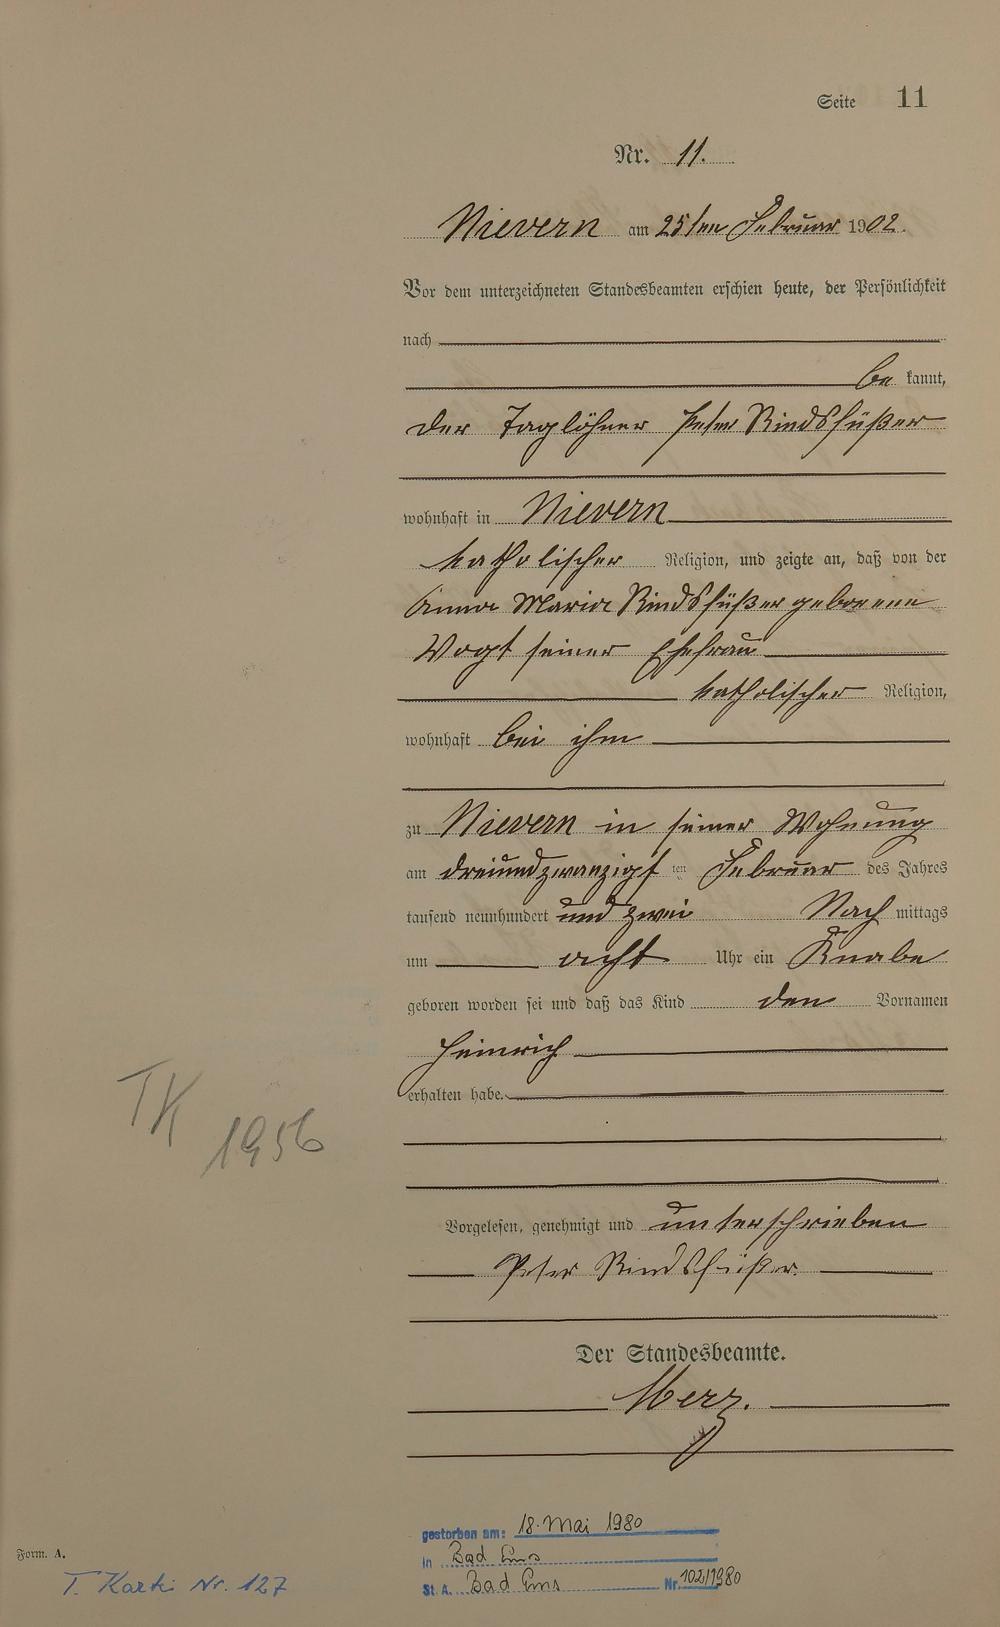 Seite 11
Nr. 11.
Nievern am 25ten Februar 1902.
Vor dem unterzeichneten Standesbeamten erschien heute, der Persönlichkeit
nach
be kannt,
der Taglöhner Peter Rindsfüßer
wohnhaft in Nievern
katholischer Religion, und zeigte an, daß von der
Anna Maria Rindsfüßer geborene
Vogt seiner Ehefrau
katholischer Religion,
wohnhaft bei ihm
zu Nievern in seiner Wohnung
am dreiundzwanzigst ten Februar des Jahres
tausend neunhundert und zwei Nach mittags
um acht Uhr ein Knabe
geboren worden sei und daß das Kind den Vornamen
Heinrich
erhalten habe.
TK
1956
Vorgelesen, genehmigt und unterschrieben
Peter Rindsfüßer
Der Standesbeamte.
Merz.
gestorben am: 18. Mai 1980
in Bad Ems
St. A. Bad Ems Nr. 102/1980
Form. A.
T. Kartei Nr. 127